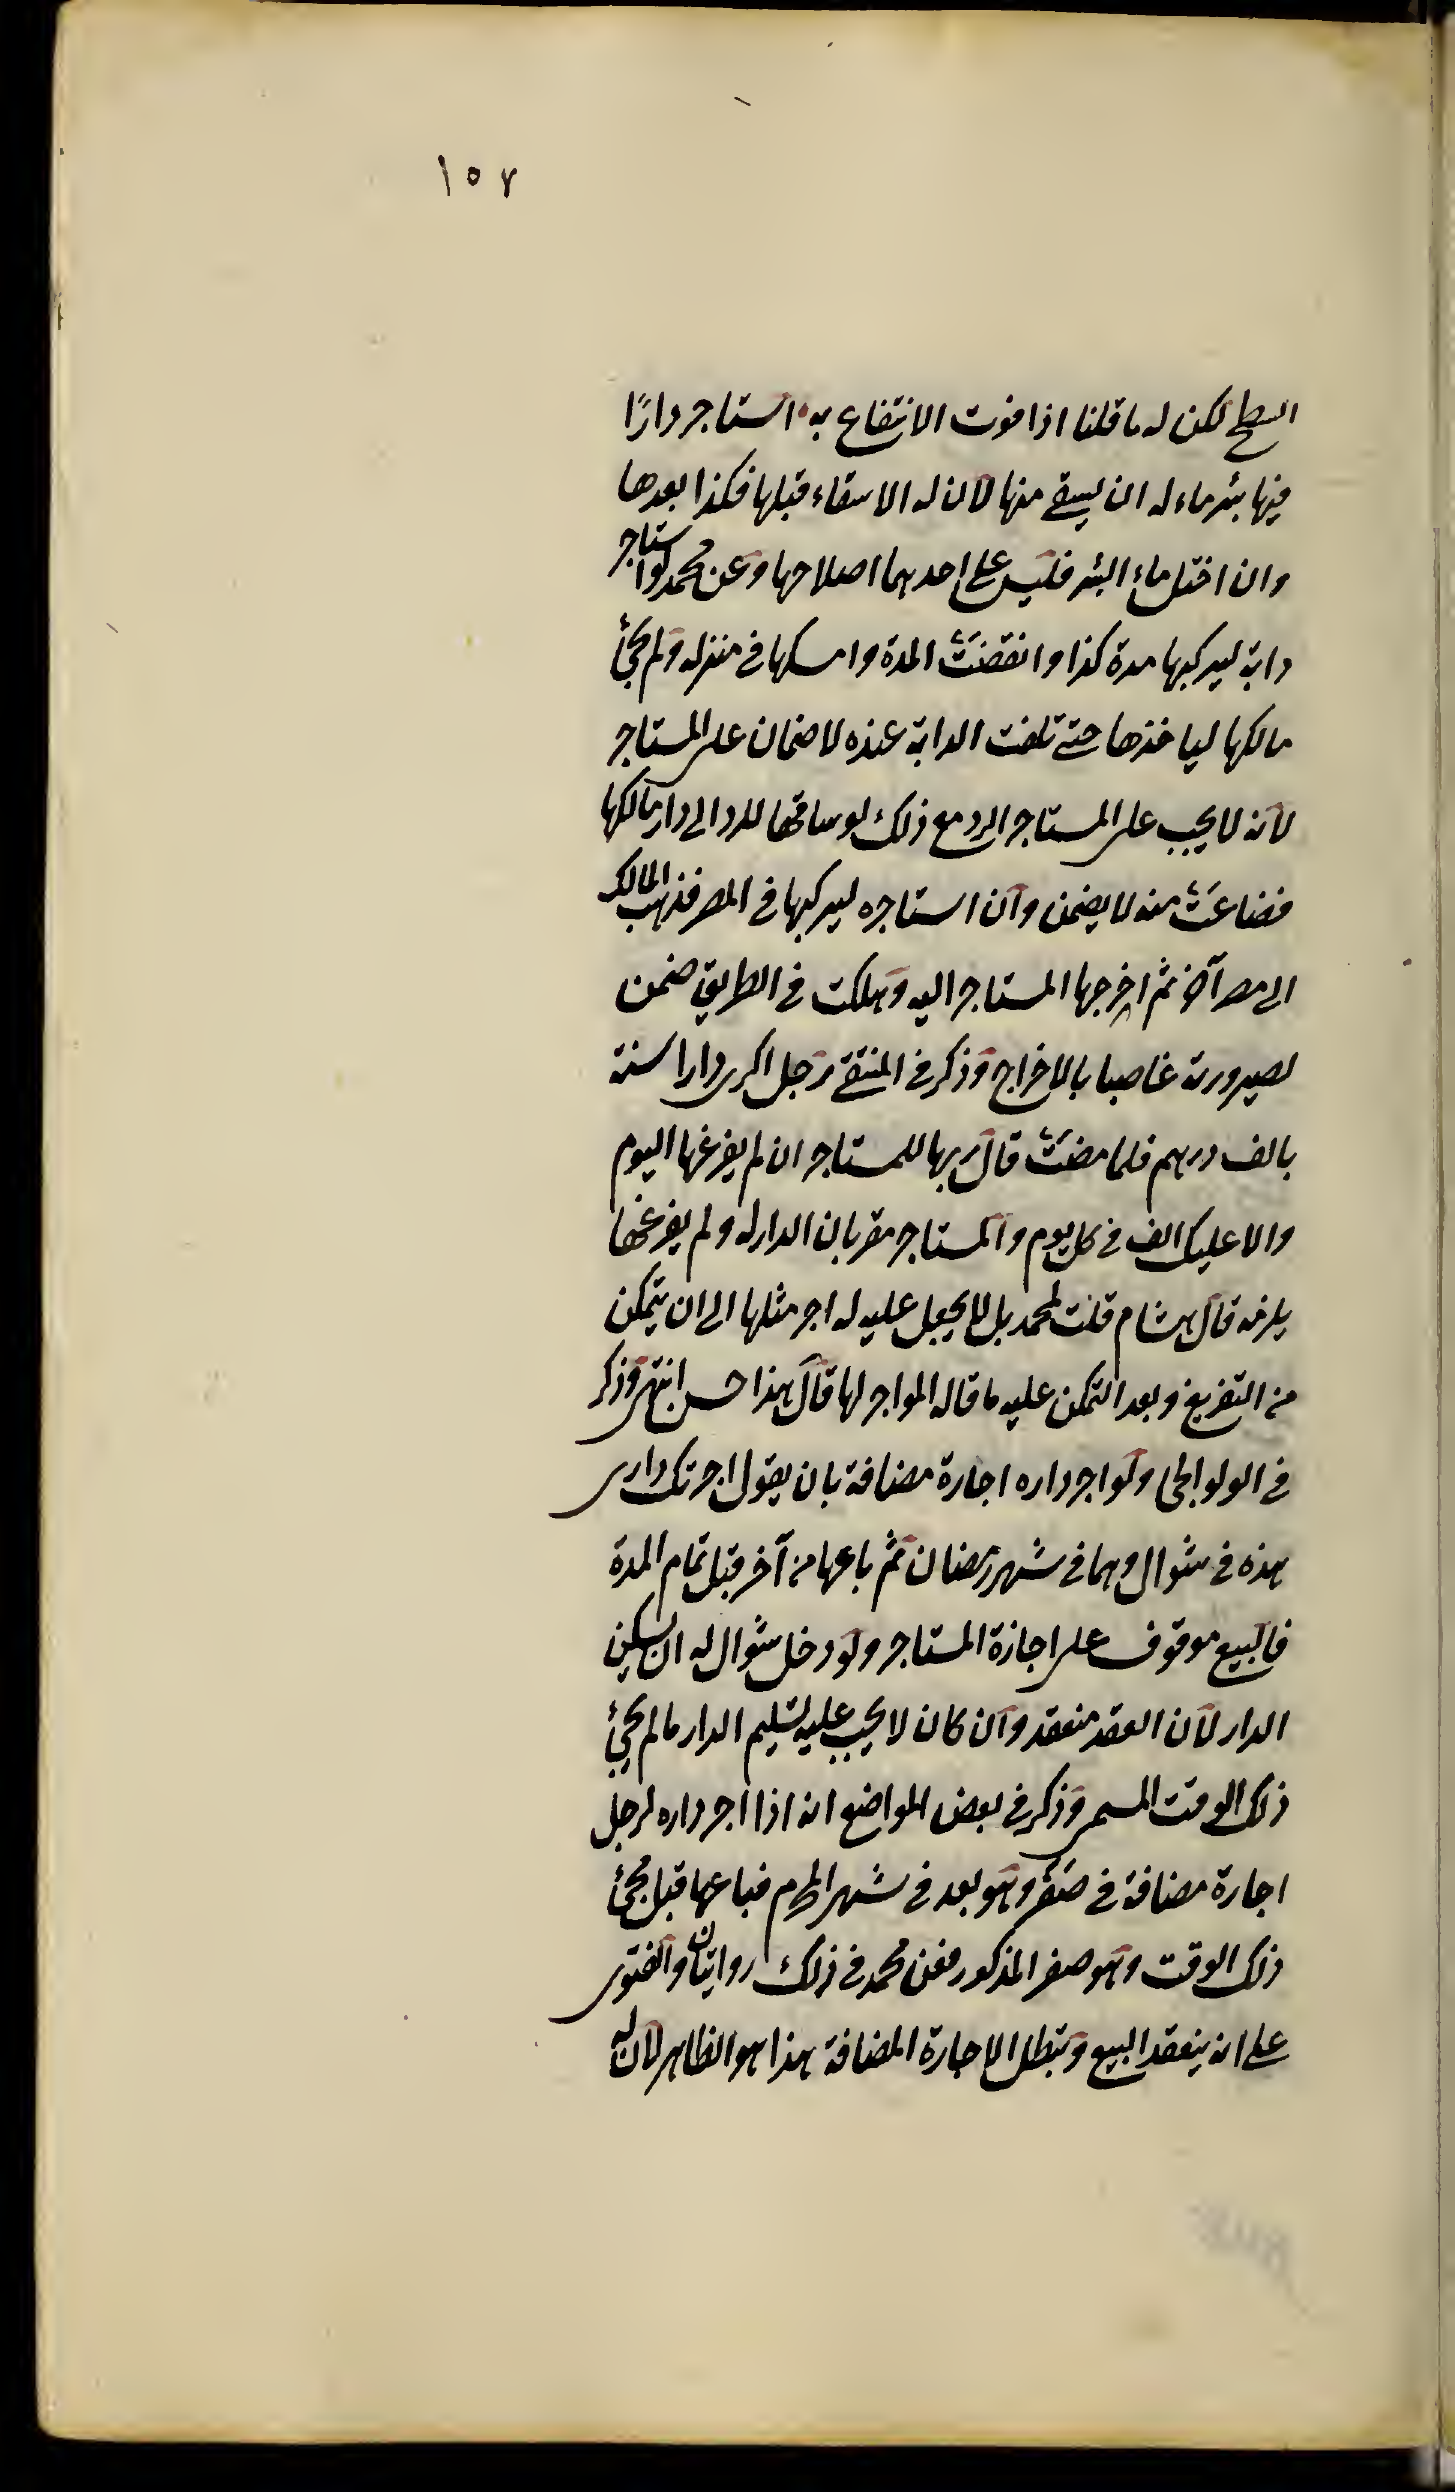 ١٥٧
السطح لكن له ما قلنا اذا فوت الانتفاع به استاجر دارًا
فيها بئر ماء له ان يسقي منها لان له الاسقاء قبلها فكذا بعدها
وان اختل ماء البئر فليس على احدهما اصلاحها وعن محمد لو استاجر
دابة ليركبها مدة كذا وانقضت المدة وامسكها في منزله ولم يجئ
مالكها لياخذها حتى تلفت الدابة عنده لا ضمان على المستاجر
لانه لا يجب على المستاجر الرد مع ذلك لو ساقها للرد الى دار مالكها
فضاعت منه لا يضمن وان استاجره ليركبها في المصر فذهب المالك
الى مصر آخر ثم اخرجها المستاجر اليه وهلكت في الطريق ضمن
لصيرورته غاصبا بالاخراج وذكر في المنتقى رجل اكرى دارا سنة
بالف درهم فلما مضت قال ربها للمستاجر ان لم يفرغها اليوم
والا عليك الف في كل يوم والمستاجر مقر بان الدار له ولم يفرغها
يلزمه قال هشام قلت لمحمد بل لا يجعل عليه له اجر مثلها الى ان يتمكن
من التفريغ وبعد التمكن عليه ما قاله المواجر لها قال هذا حسن انتهى وذكر
في الولوالجي ولو اجر داره اجارة مضافة بان يقول اجرتك داري
هذه في شوال وهما في شهر رمضان ثم باعها من آخر قبل تمام المدة
فالبيع موقوف على اجازة المستاجر ولو دخل شوال له ان يسكن
الدار لان العقد منعقد وان كان لا يجب عليه تسليم الدار ما لم يجئ
ذلك الوقت المسمى وذكر في بعض المواضع انه اذا اجر داره لرجل
اجارة مضافة في صفر وهو بعد في شهر المحرم فباعها قبل مجئ
ذلك الوقت وهو صفر المذكور فعن محمد في ذلك روايتان والفتوى
على انه ينعقد البيع وتبطل الاجارة المضافة هذا هو الظاهر لان له